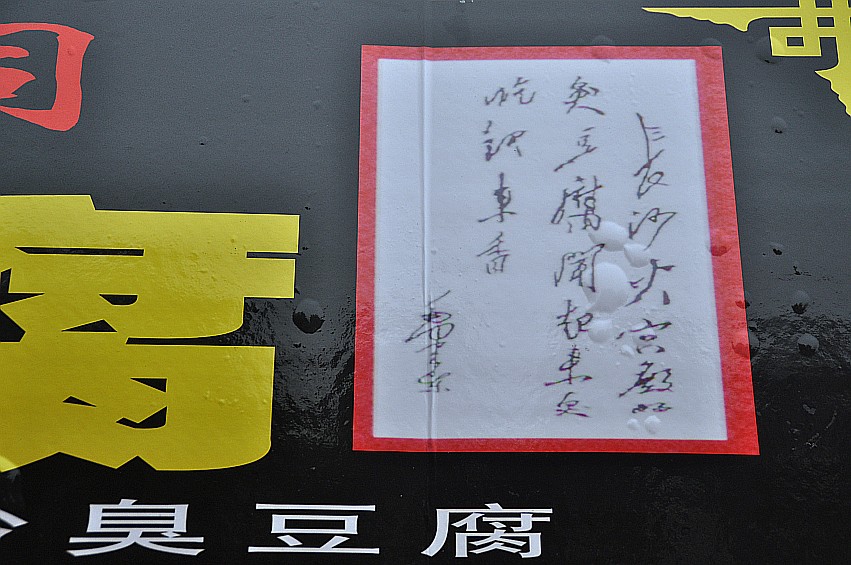 长沙火宫殿的
臭豆腐闻起来臭
吃起来香
毛泽东
臭豆腐